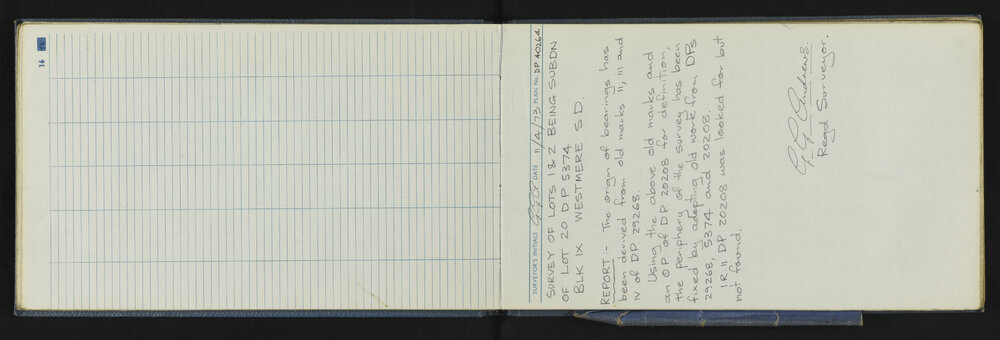 16
SURVEYOR'S INITIALS GGA DATE 11/4/73 PLAN No. DP 40264
SURVEY OF LOTS 1 & 2 BEING SUBDN
OF LOT 20 D.P. 5374
BLK IX WESTMERE S.D.
REPORT :- The origin of bearings has
been derived from old marks II, III and
IV of DP 29268.
Using the above old marks and
an OP of DP 20208 for definition,
the periphery of the survey has been
fixed by adopting old work from DPs
29268, 5374 and 20208.
IR II DP 20208 was looked for but
not found.
G G Andrews.
Regd Surveyor.